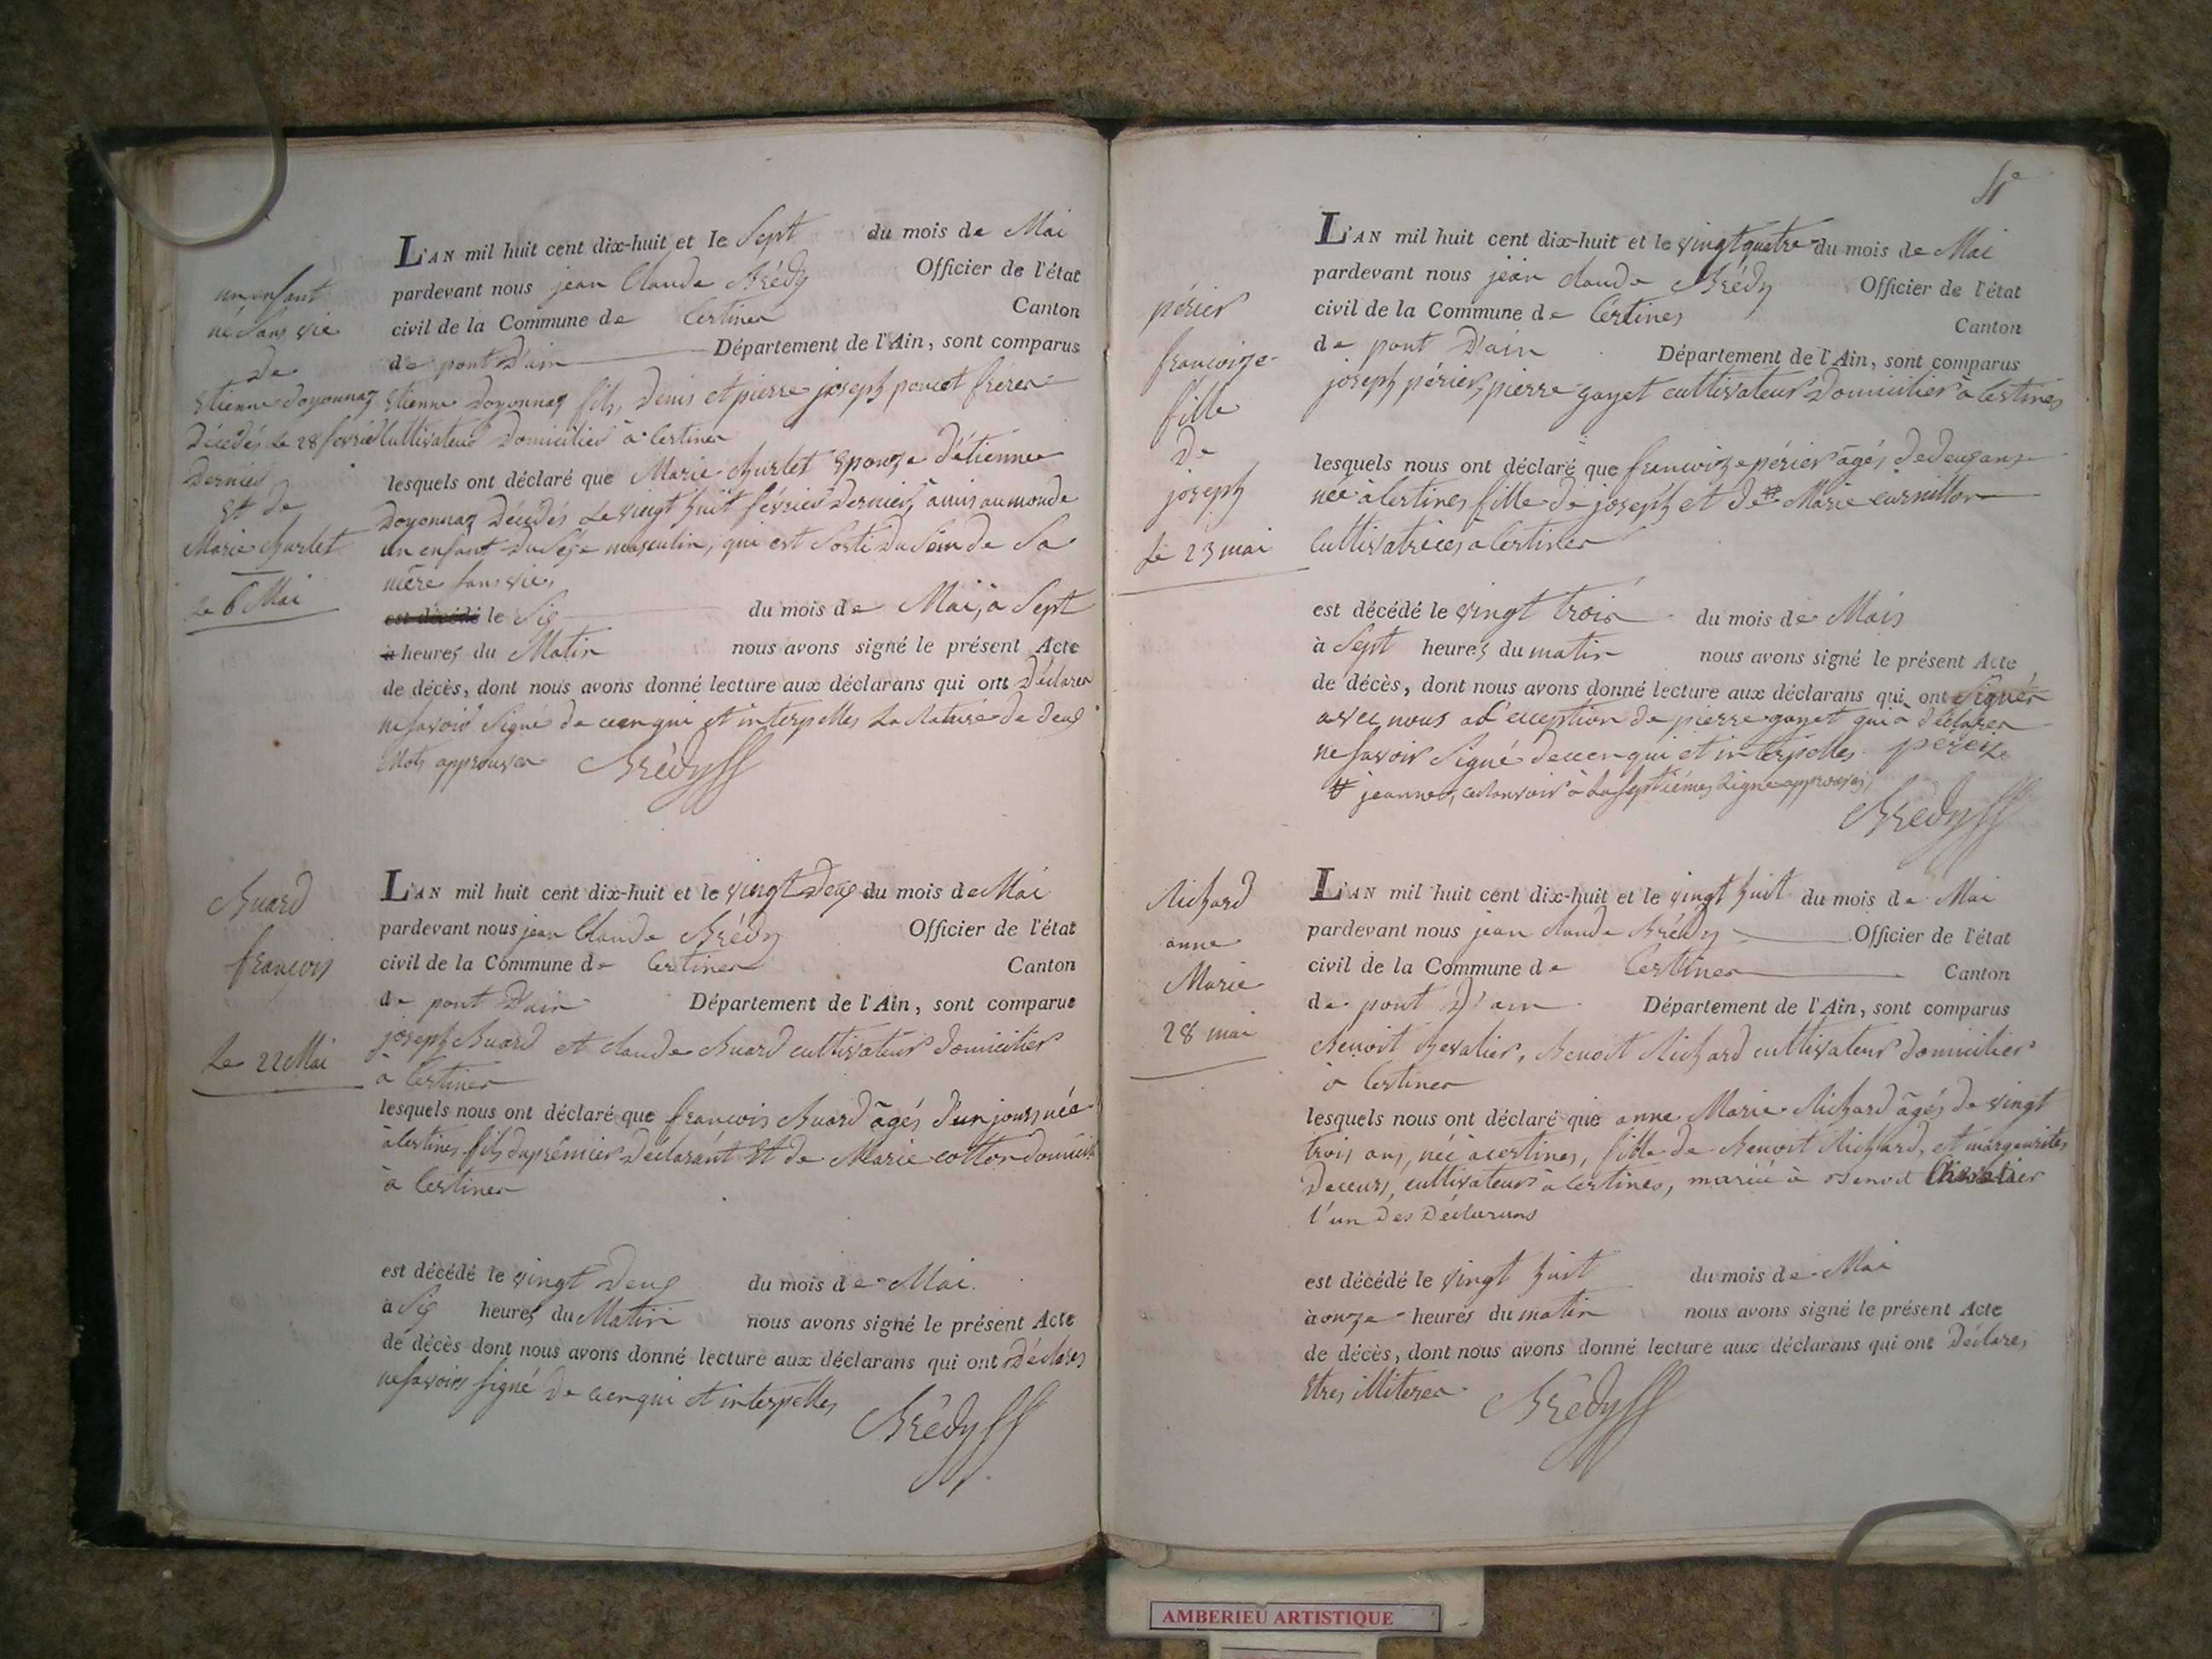 un enfant
né sans vie
de
Etienne doyonnaz
décédés le 28 février
dernier
Et de
Marie churlet
le 6 Mai
L'AN mil huit cent dix-huit et le Sept du mois de Mai
pardevant nous jean Claude Brédy Officier de l'état
civil de la Commune de Certines Canton
de pont D'ain Département de l'Ain, sont comparus
Etienne Doyonnaz fils, Denis et pierre joseph poncet frères
Cultivateurs Domiciliés à Certines
lesquels ont déclaré que Marie churlet Epouze d'étienne
Doyonnaz Décédés Le vingt huit février Dernier, à mis au monde
un enfant Du Sexe masculin, qui est Sorti Du Sein de Sa
mère sans vie,
est décédé le Six du mois de Mai, à Sept
à heures du Matin nous avons signé le présent Acte
de décès, dont nous avons donné lecture aux déclarans qui ont Déclarés
ne savoir Signé de ce enqui et interpelles La Rature de deux
Mots approuvés Brédy
Buard
françois
Le 22 Mai
L'AN mil huit cent dix-huit et le vingt Deux du mois de Mai
pardevant nous jean Claude Brédy Officier de l'état
civil de la Commune de Certines Canton
de pont D'ain Département de l'Ain, sont comparus
joseph Buard et claude Buard cultivateurs domicilier
à Certines
lesquels nous ont déclaré que francois Buard âgés d'un jours née
à Certines fils du premier Déclarant Et de Marie cotton
à Certines
est décédé le vingt Deux du mois de Mai.
à Six heures du Matin nous avons signé le présent Acte
de décès dont nous avons donné lecture aux déclarans qui ont Déclarés
ne savoirs signé de ce enqui et interpelles
Brédy
4e
périer
francoize
fille
de
joseph
Le 23 mai
L'AN mil huit cent dix-huit et le vingt quatre du mois de Mai
pardevant nous jean claude Brédy Officier de l'état
civil de la Commune de Certines Canton
de pont D'ain Département de l'Ain, sont comparus
joseph périer, pierre gayet cultivateurs Domicilier à Certines
lesquels nous ont déclaré que francoize périer âgés de deux ans
née à Certines fille de joseph et de # Marie
Cultivatrices à Certines
est décédé le vingt trois du mois de Mais
à Sept heures du matin nous avons signé le présent Acte
de décès, dont nous avons donné lecture aux déclarans qui ont Signés
avec nous a L'exception de pierre gayet qui à déclarer
ne savoir Signé de ce enqui et interpelles. péreize
# jeanne, à La Septiémes Ligne approuvés,
Brédy
Richard
anne
Marie
28 mai
L'AN mil huit cent dix-huit et le vingt huit du mois de Mai
pardevant nous jean claude Brédy Officier de l'état
civil de la Commune de Certines Canton
de pont D'ain Département de l'Ain, sont comparus
Benoit Chevalier, Benoit Richard cultivateurs domicilier
à Certines
lesquels nous ont déclaré que anne Marie Richard âgés de vingt
trois ans, née à certines, fille de Benoit Richard, et margaurites
Deceurs, cultivateurs à Certines, mariée à Benoit Chevalier
l'un des Déclarans
est décédé le vingt huit du mois de Mai
à onze heures du matin nous avons signé le présent Acte
de décès, dont nous avons donné lecture aux déclarans qui ont Déclarés,
Etres illiteres Brédy
AMBERIEU ARTISTIQUE